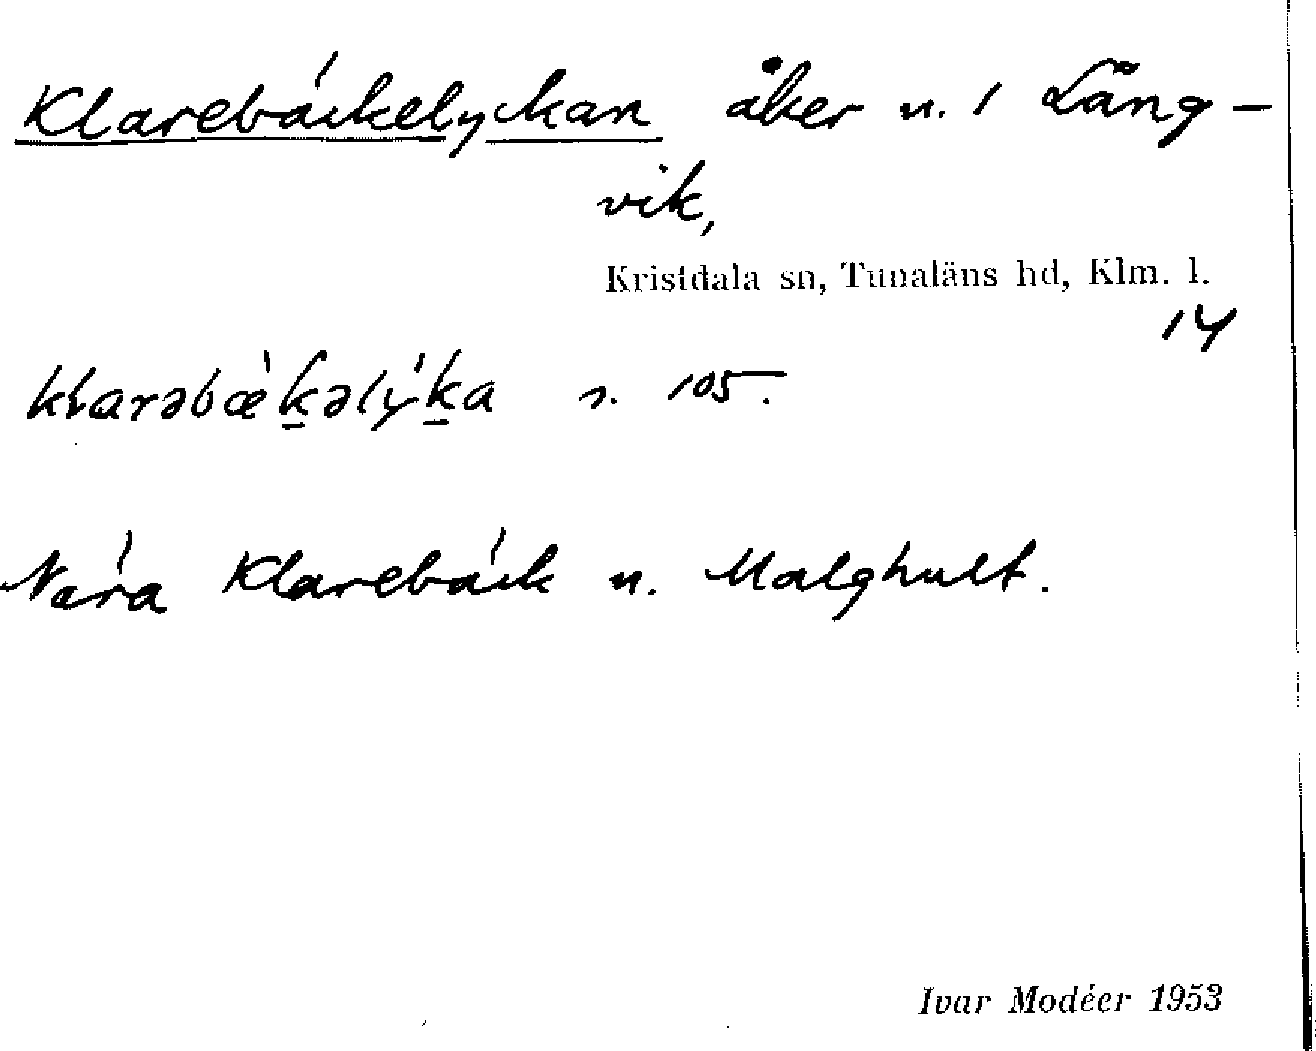 Klarebäckelyckan åker n. 1 Lång-
vik,
Kristdala sn, Tunaläns hd, Klm. l.
14
klarəbæ̀kəlý̀ka s. 105.
Nära Klarebäck u. Malghult.
Ivar Modéer 1953